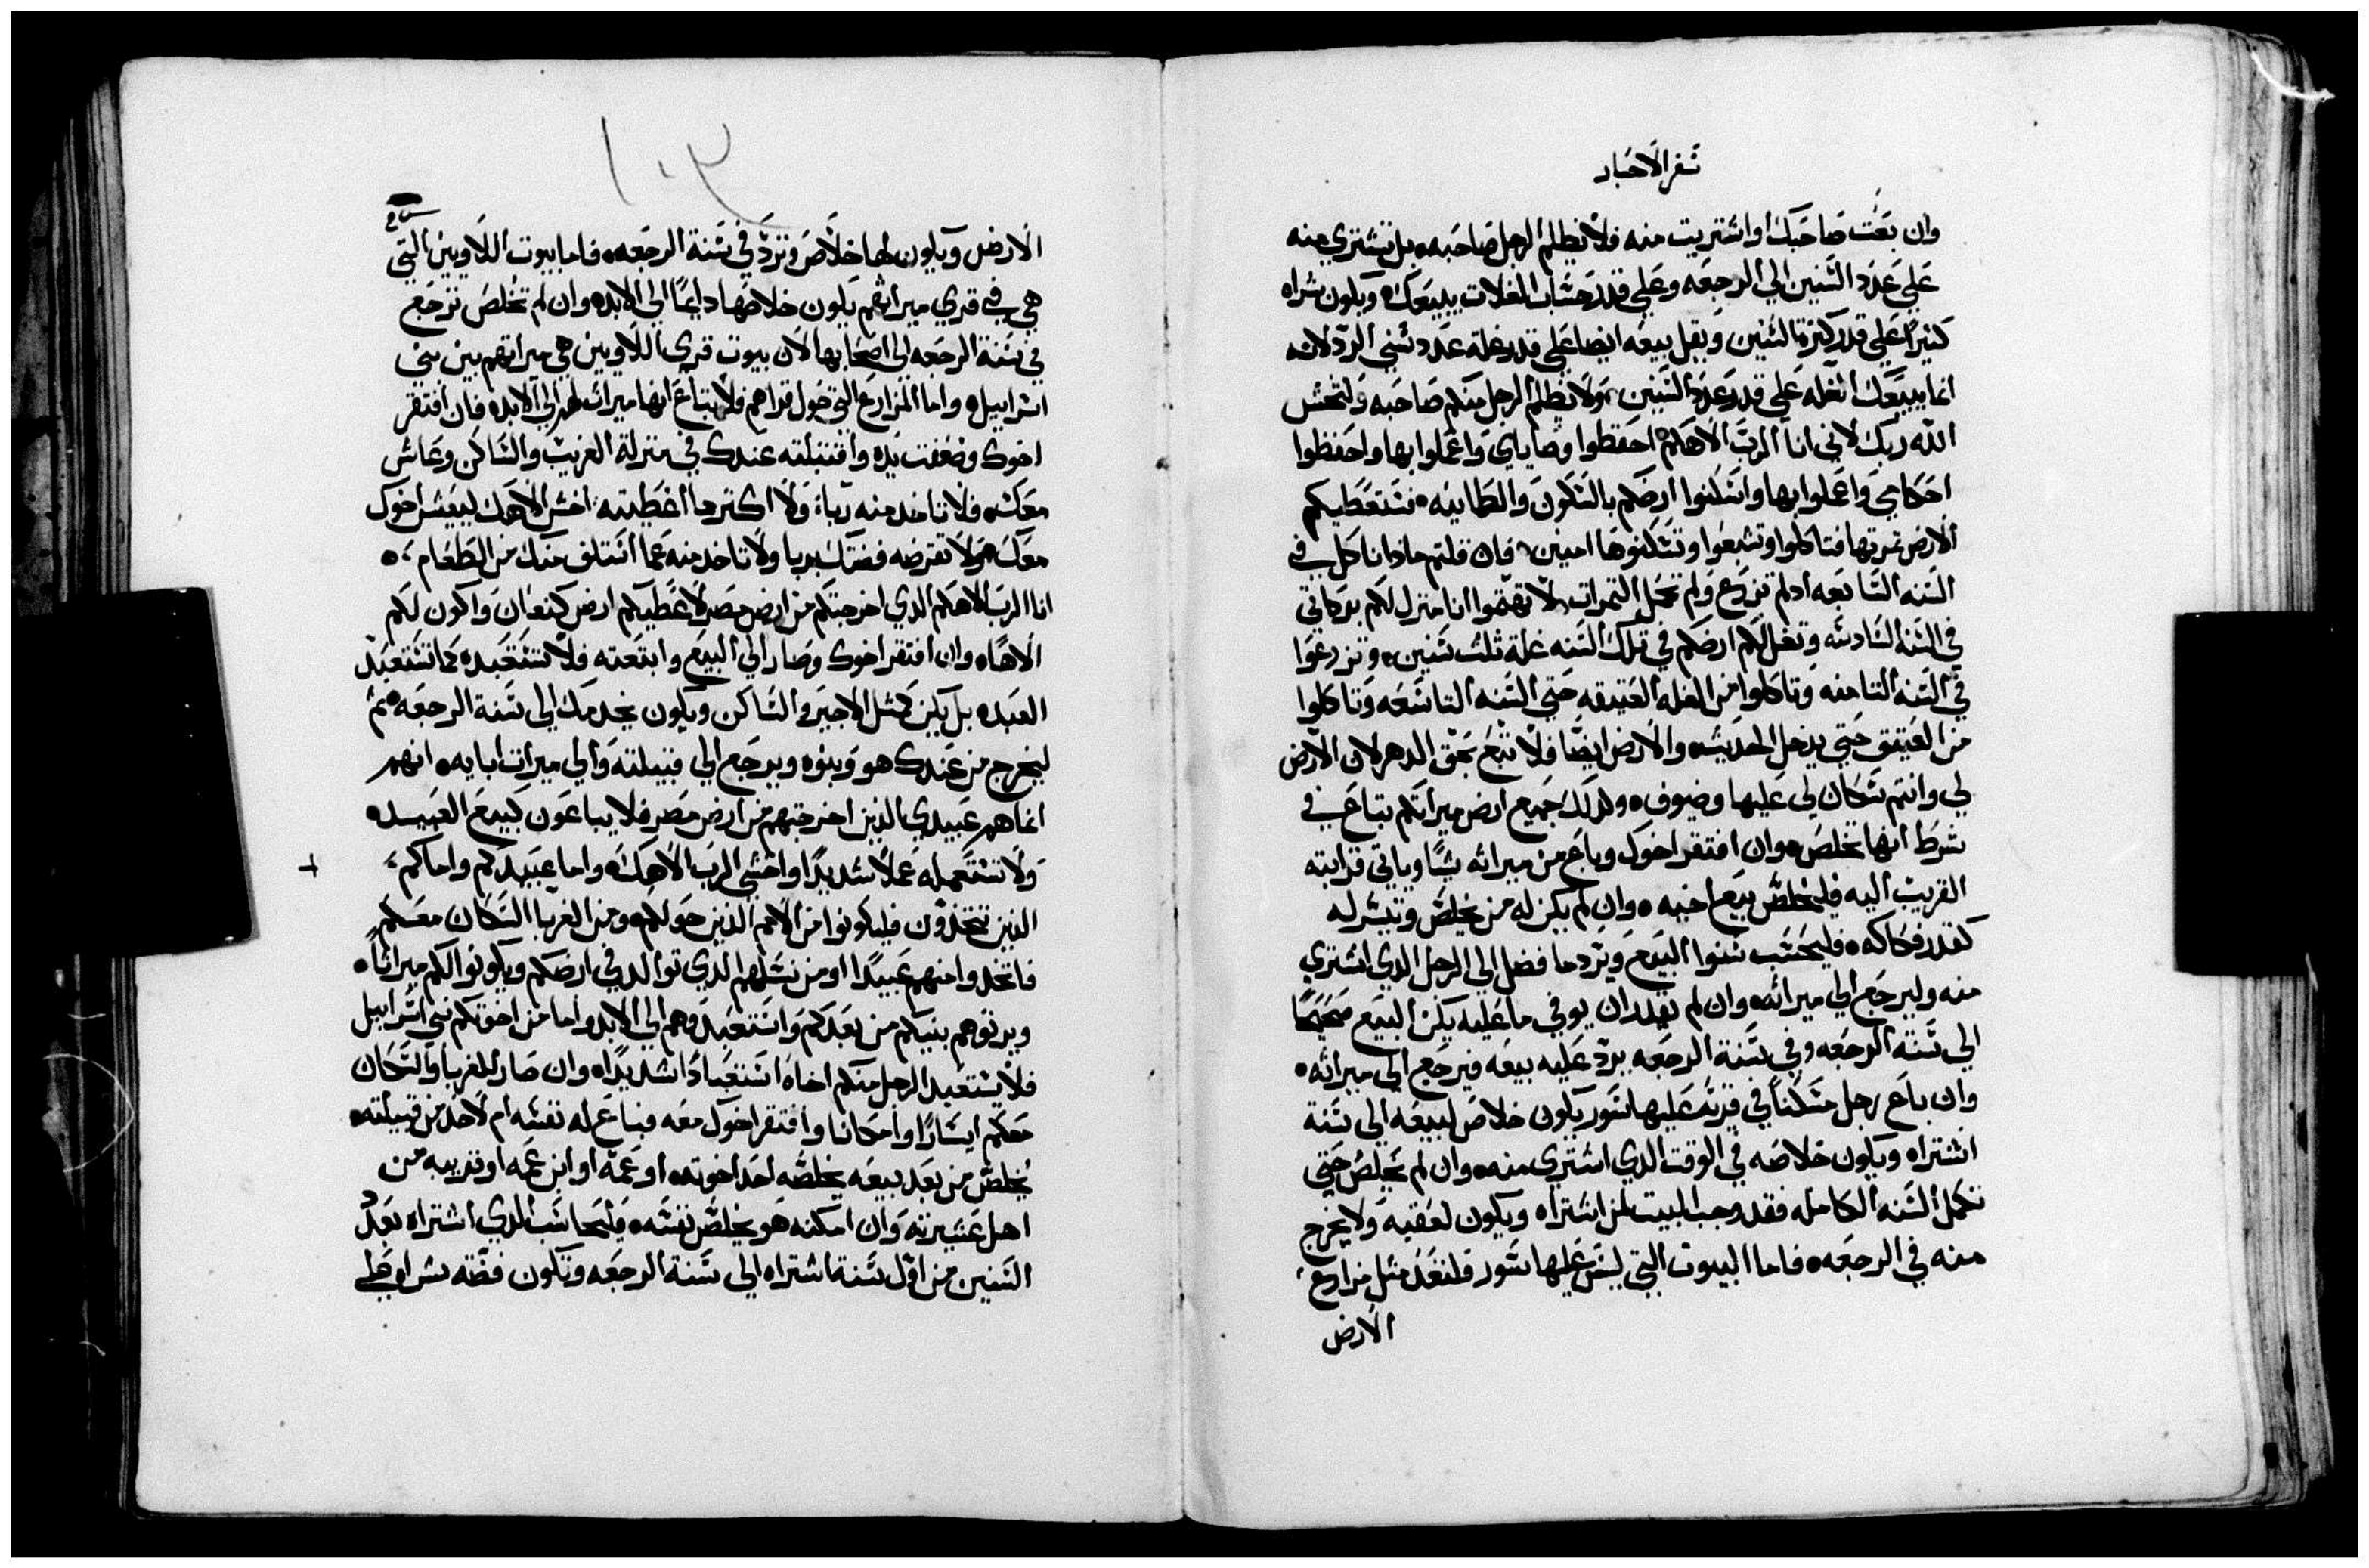 سفر الاحبار
وان بعت صاحبك او اشتريت منه فلا يظلم الرجل صاحبه بل تشتري منه
علي عدد السنين الي الرجعه وعلي قدر حساب الغلات يبيعك ويكون شراه
كثيرا علي قدر كثرة السنين ويقل بيعه ايضا علي قدر غلة عدد سني الرد لانه
انما يبيعك الغله علي قدر عدد السنين ولا يظلم الرجل منكم صاحبه ولتخش
الله ربك لاني انا الرب الاهكم احفظوا وصاياي واعملوا بها واحفظوا
احكامي واعملوا بها واسكنوا ارضكم بالسكون والطمانينه فستعطيكم
الارض ثمرتها فتاكلوا وتشبعوا وتسكنوها امنين فان قلتم ماذا ناكل في
السنه السابعه اد لم نزرع ولم نحمل الثمرات لا تهتموا انا منزل لكم بركاتي
في السنه السادسه وتغل لكم ارضكم في تلك السنه غلة ثلث سنين وتزرعوا
في السنه التامنه وتاكلوا من الغله العتيقه حتي السنه التاسعه وتاكلوا
من العتيق حتي يدخل الحديث والارض ايضا فلا تبع بحق الدهر لان الارض
لي وانتم سكان لي عليها وضيوف ولدلك جميع ارض ميراتكم تباع في
شرط انها تخلص وان افتقر اخوك وباع من ميراثه شيا وياتي قرابته
القريب اليه فليخلص بيع اخيه وان لم يكن له من يخلص وتيسر له
كقدر فكاكه فليحسب سنوا البيع ويرد ما فضل الي الرجل الدي اشتري
منه وليرجع الي ميراثه وان لم يقدر ان يوفي ما عليه يكن البيع صحيحا
الي سنة الرجعه وفي سنة الرجعه يرد عليه بيعه فيرجع الي ميراثه
وان باع رجل مسكنا في قرية عليها سور يكون خلاص لبيعه الي سنة
اشتراه ويكون خلاصه في الوقت الدي اشتري منه وان لم يخلص حتي
تكمل السنه الكامله فقد وجب البيت لمن اشتراه ويكون لعقبه ولا يخرج
منه في الرجعه فاما البيوت التي ليس عليها سور فلتعد مثل مزارع
الارض
١٠٣
الارض ويكون لها خلاص وترد في سنة الرجعه فاما بيوت اللاويين التي
هي في قري ميراثهم يكون خلاصها دايما الي الابد وان لم تخلص ترجع
في سنة الرجعه الي اصحابها لان بيوت قري اللاويين هي ميراثهم بين بني
اسراييل واما المزارع التي حول قراهم فلا تباع انها ميراث لهم الي الابد فان افتقر
اخوك وضعفت يده واقتبلته عندك في منزلة الغريب والساكن وعاش
معك فلا تاخد منه ربا ولا اكتر مما اعطيته اخش الاهك ليعيش اخوك
معك ولا تقرضه فضتك بربا ولا تاخد منه عما استلف منك من الطعام
انا الرب الاهكم الدي اخرجتكم من ارض مصر لاعطيكم ارض كنعان واكون لكم
الاها وان افتقر اخوك وصار الي البيع وابتعته فلا تستعبده كما تستعبد
العبد بل يكن كمثل الاجير والساكن ويكون يخدمك الي سنة الرجعه ثم
ليخرج من عندك هو وبنوه ويرجع الي قبيلته والي ميرات ابايه انهم
انما هم عبيدي الدين اخرجتهم من ارض مصر فلا يباعون كبيع العبيد
ولا تستعمله عملا شديدا واخشي الرب الاهك واما عبيدكم واماكم
الدين تتخدون فليكونوا من الامم الدين حولكم ومن الغربا السكان معكم
فاتخدوا منهم عبيدا او من نسلهم الدي توالد في ارضكم ويكونوا لكم ميراثا
ويرثوهم بنيكم من بعدكم واستعبدوهم الي الابد واما من اخوتكم بني اسراييل
فلا يستعبد الرجل منكم اخاه استعبادا شديدا وان صار للغربا والسكان
معكم ايسارا وامكانا وافتقر اخوك معه فباع له نفسه ام لاحد من قبيلته
يخلص من بعد بيعه يخلصه احد اخوته او عمه او ابن عمه او قريبه من
اهل عشيرته وان امكنه هو يخلص نفسه فليحاسب الدي اشتراه بعدد
السنين من اول سنة اشتراه الي سنة الرجعه وتكون فضة شراه علي